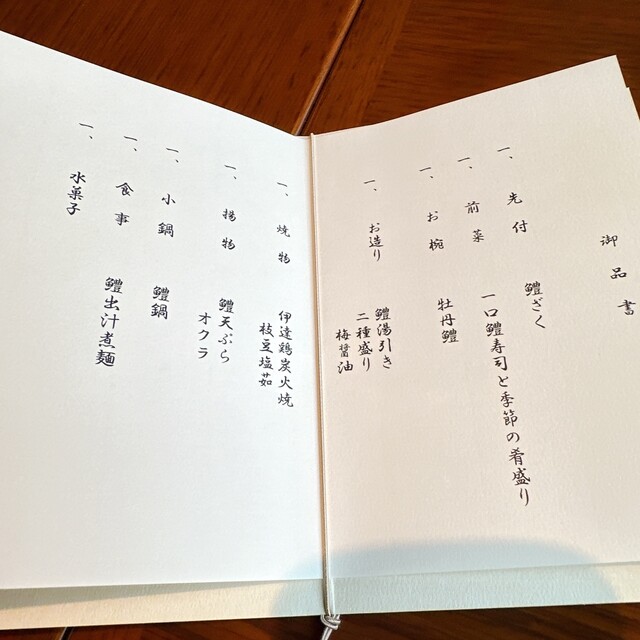 御品書
一、先付
鱧ざく
一、前菜
一口鱧寿司と季節の肴盛り
一、お椀
牡丹鱧
一、お造り
鱧湯引き
二種盛り
梅醤油
一、焼物
伊達鶏炭火焼
枝豆塩茹
一、揚物
鱧天ぷら
オクラ
一、小鍋
鱧鍋
一、食事
鱧出汁煮麺
一、水菓子